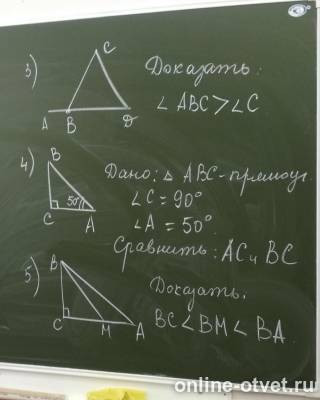 3)
C
A B D
Доказать:
∠ ABC > ∠ C
4)
B
50°
C A
Дано: Δ ABC - прямоуг.
∠ C = 90°
∠ A = 50°
Сравнить: AC и BC
5)
B
C M A
Доказать.
BC < BM < BA
online-otvet.ru